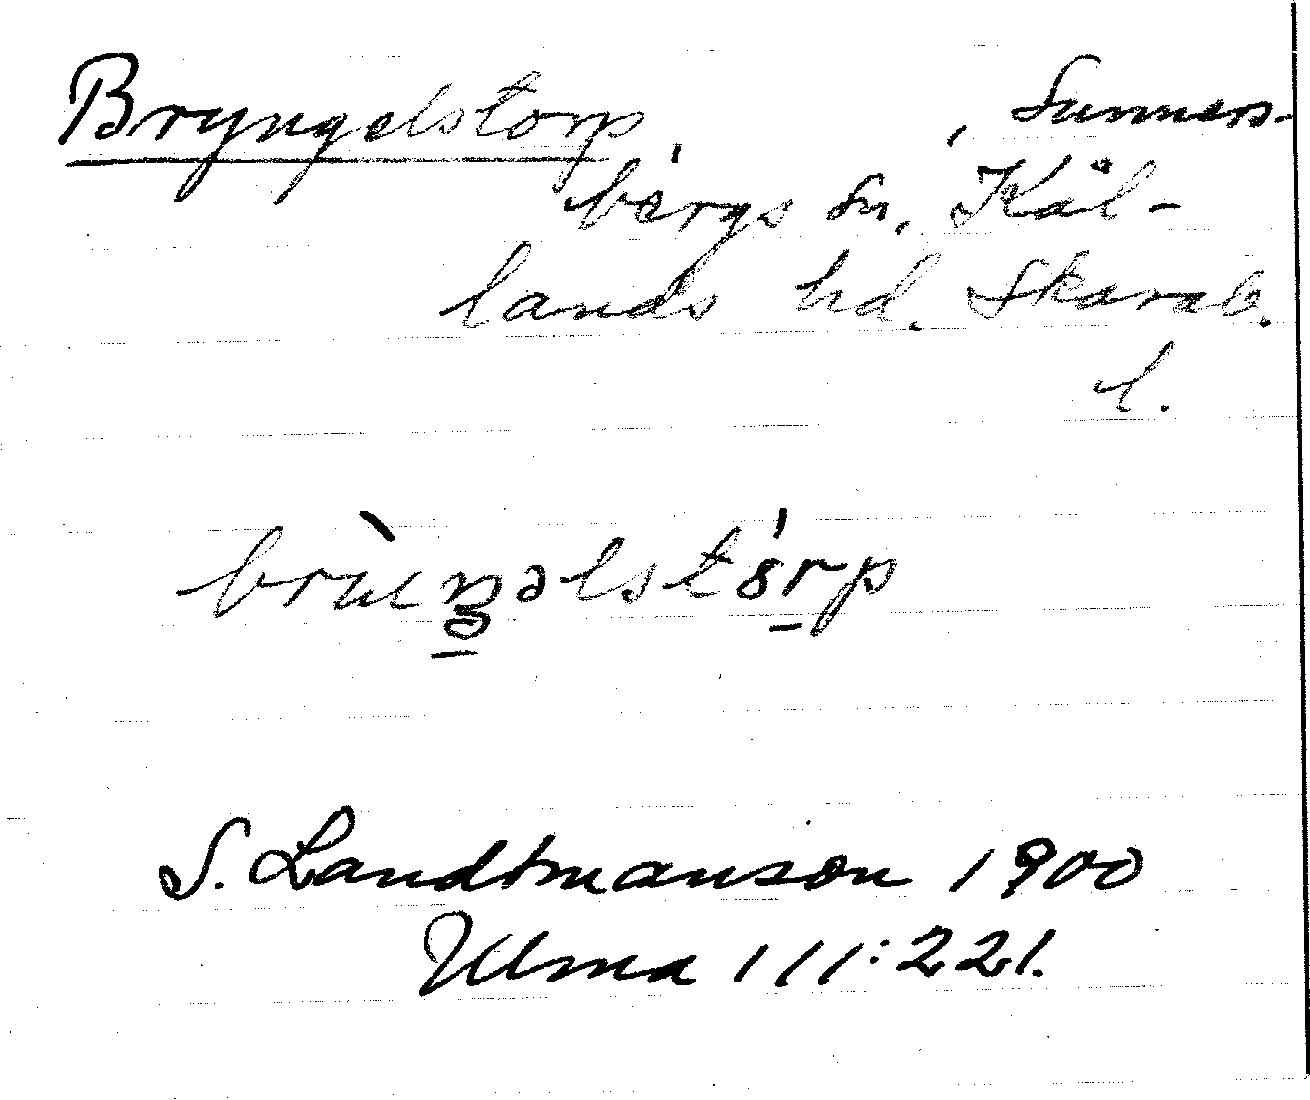 Bryngelstorp, Sunners-
bergs sn, Kål-
lands hd. Skarab.
l.
S. Landtmanson 1900
Ulma 111:221.